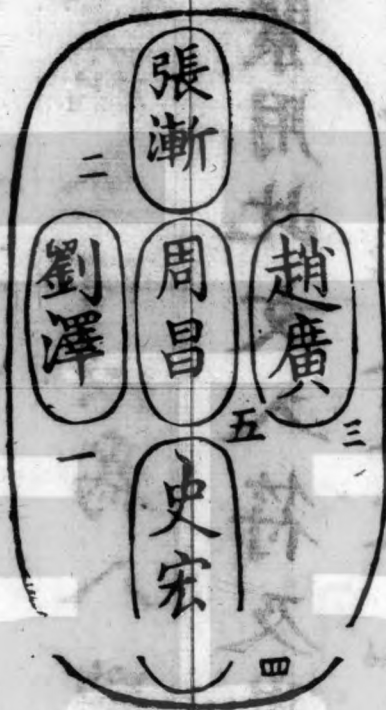 張漸
二
趙廣
三
周昌
五
劉澤
一
史宏
四